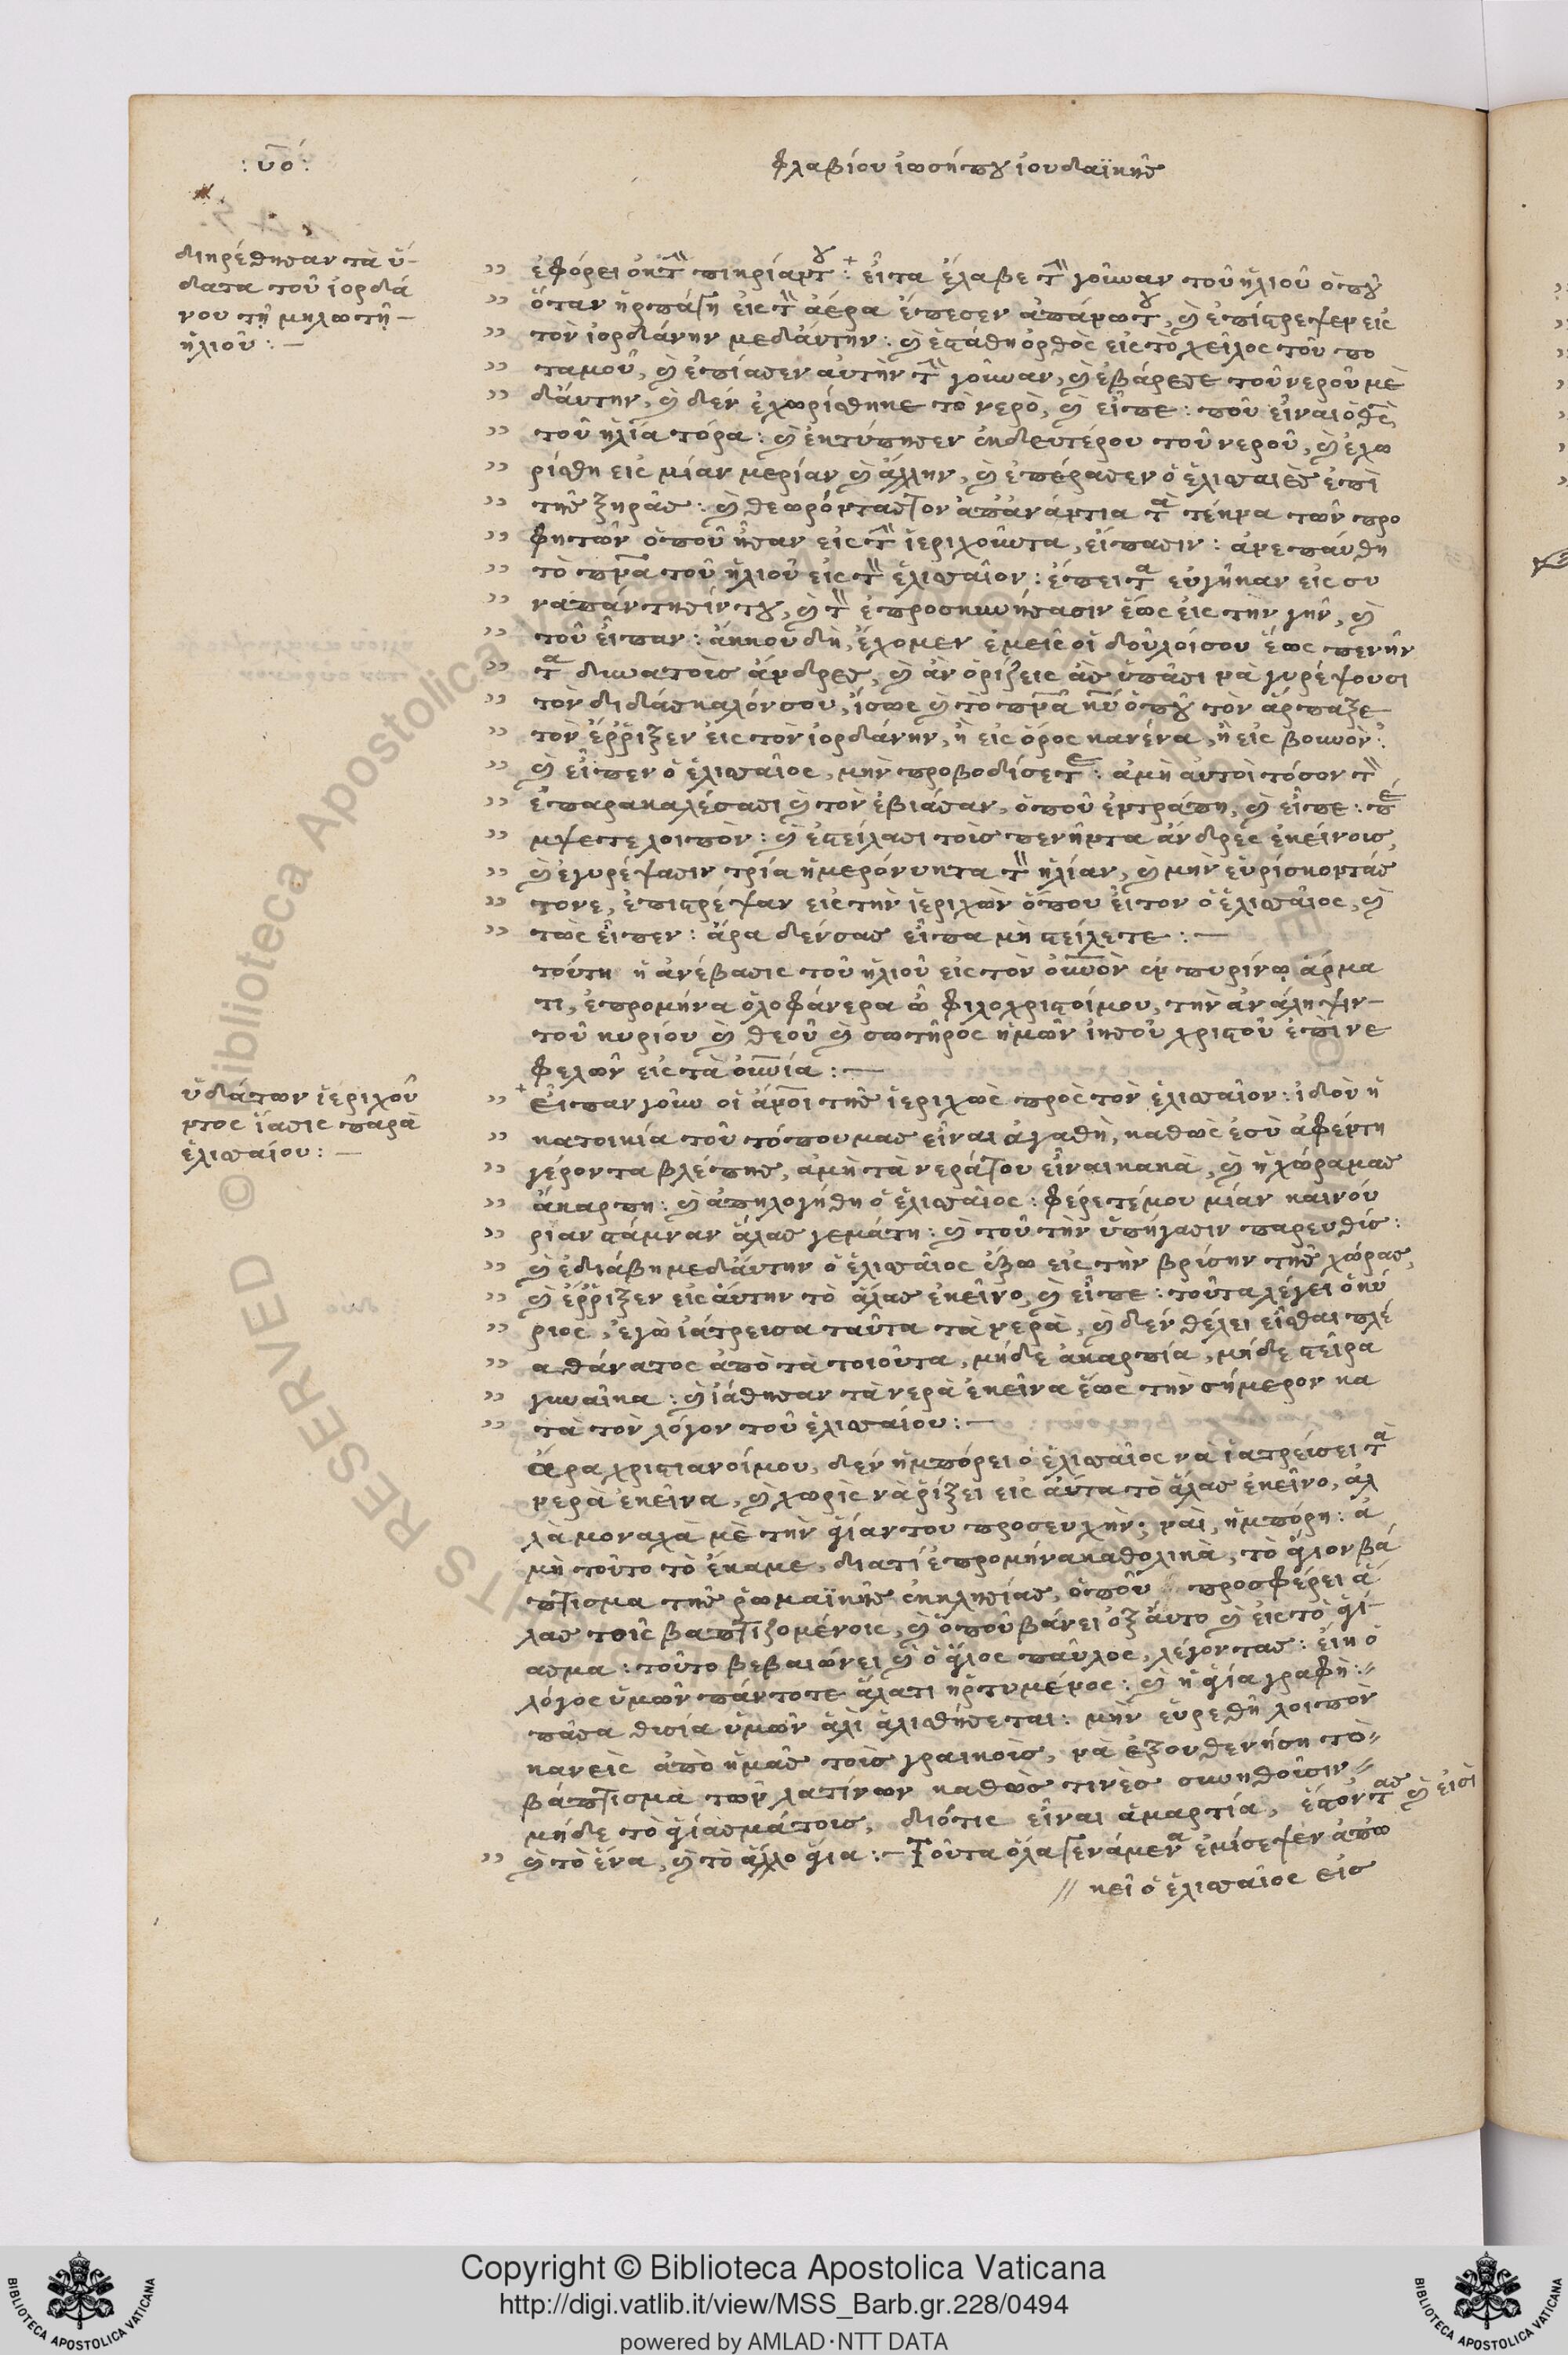 : υο :
φλαβίου ἰωσήπου ἰουδαϊκῆς
διηρέθησαν τὰ ὕ-
δατα τοῦ ἰορδά
νου τῇ μηλωτῇ
ἡλιοῦ : —
ἐφόρει ἐκ τὴν πικρίαν του : εἶτα ἔλαβε τὴν γοῦναν τοῦ ἡλιοῦ ὁποῦ
ὅταν ἡρπάγη εἰς τὸν ἀέρα ἔπεσεν ἀπάνω του, καὶ ἐπιστρεψεν εἰς
τὸν ἰορδάνην μεδαύτην : καὶ ἐστάθη ὀρθὸς εἰς τὸ χεῖλος τοῦ πο
ταμοῦ, καὶ ἐπίασεν αὐτὴν τὴν γοῦναν, καὶ ἐβάρεσε τοῦ νεροῦ μὲ
δαύτην, καὶ δὲν ἐχωρίσθηκε τὸ νερὸ, καὶ εἶπε : ποῦ εἶναι ὁ θεὸς
τοῦ ἡλία τόρα : καὶ ἐκτύπησεν ἐκ δευτέρου τοῦ νεροῦ, καὶ ἐχω
ρίσθη εἰς μίαν μερίαν καὶ ἄλλην, καὶ ἐπέρασεν ὁ ἐλισσαιὲς ἐπὶ
τῆς ξηρᾶς : καὶ θεωρόντας τον ἀπανάντια τὰ τέκνα τῶν προ
φητῶν ὁποῦ ἦσαν εἰς τὴν ἱεριχοῦντα, εἴπασιν : ἀνεπαύθη
τὸ πνᾶ τοῦ ἡλιοῦ εἰς τὸν ἐλισσαῖον : ἔπειτα εὐγῆκαν εἰς συ
ναπάντησίν του, καὶ τὸν ἐπροσκυνήσασιν ἕως εἰς τὴν γῆν, καὶ
τοῦ εἶπαν : ἄκκου δὴ, ἔχομεν ἐμεῖς οἱ δοῦλοί σου ἕως πενῆν
τα δυνατοὶς ἄνδρες, καὶ ἂν ὁρίζεις ἂς ὑπᾶσι νὰ γυρέψουσι
τὸν διδάσκαλόν σου, ἴσως καὶ τὸ πνᾶ κῡ ὁποῦ τὸν ἅρπαξε
τὸν ἔρριξεν εἰς τὸν ἰορδάνην, ἢ εἰς ὄρος κανένα, ἢ εἰς βουνὸν :
καὶ εἶπεν ὁ ἐλισσαῖος, μὴν προβοδίσετε : ἀμὴ αὐτοὶ τόσον τὸν
ἐπαρακαλέσασι καὶ τὸν ἐβιάσαν, ὁποῦ ἐντράπη, καὶ εἶπε : πέ
μψετε λοιπὸν : καὶ ἐστείλασι τοὶς πενῆντα ἄνδρες ἐκείνοις,
καὶ ἐγυρέψασιν τρία ἡμερόνυκτα τὸν ἡλίαν, καὶ μὴν εὑρίσκοντάς
τονε, ἐπιστρέψαν εἰς τὴν ἱεριχὼν ὅπου εἶτον ὁ ἐλισσαῖος, καὶ
τὼς εἶπεν : ἄρα δέν σας εἶπα μὴ στείλετε : —
τούτη ἡ ἀνέβασις τοῦ ἡλιοῦ εἰς τὸν οὐνὸν ἐν πυρίνῳ ἅρμα
τι, ἐπρομήνα ὁλοφάνερα ὦ φιλοχριστοίμου, τὴν ἀνάληψιν
τοῦ κυρίου καὶ θεοῦ καὶ σωτῆρος ἡμῶν ἰησοῦ χριστοῦ ἐπὶ νε
φελῶν εἰς τὰ οὐνία : —
ὑδάτων ἱεριχοῦ
ντος ἵασις παρὰ
ἐλισσαίου : —
Εἶπαν γοῦν οἱ ἄνοι τῆς ἱεριχὼς πρὸς τὸν ἐλισσαῖον : ἰδοὺ ἡ
κατοικία τοῦ τόπου μας εἶναι ἀγαθὴ, καθὼς ἐσὺ ἀφέντη
γέροντα βλέπης, ἀμὴ τὰ νερά του εἶναι κακὰ, καὶ ἡ χώρα μας
ἄκαρπη : καὶ ἀπηλογήθη ὁ ἐλισσαῖος : φέρετέ μου μίαν καινού
ριαν στάμναν ἅλας γεμάτη : καὶ τοῦ τὴν ὑπήγασιν παρευθὶς :
καὶ ἐδιάβη μεδαύτην ὁ ἐλισσαῖος ἔξω εἰς τὴν βρίσην τῆς χώρας,
καὶ ἔρριξεν εἰς αὔτην τὸ ἅλας ἐκεῖνο, καὶ εἶπε : τοῦτα λέγει ὁ κύ
ριος, ἐγὼ ἰάτρεισα ταῦτα τὰ νερὰ, καὶ δὲν θέλει εἶσθαι πλέ
α θάνατος ἀπὸ τὰ τοιοῦτα, μήδε ἀκαρπία, μήδε στεῖρα
γυναῖκα : καὶ ἰάθησαν τὰ νερὰ ἐκεῖνα ἕως τὴν σήμερον κα
τὰ τὸν λόγον τοῦ ἐλισσαίου : —
Ἄρα χριστιανοίμου, δὲν ἡμπόρει ὁ ἐλισσαῖος νὰ ἰατρείσει τὰ
νερὰ ἐκεῖνα, καὶ χωρὶς νὰ ρίξει εἰς αὔτα τὸ ἅλας ἐκεῖνο, ἀλ
λὰ μοναχὰ μὲ τὴν ἁγίαν του προσευχὴν ; ναὶ, ἡμπόρη : ἀ
μὴ τοῦτο τὸ ἔκαμε, διατὶ ἐπρομήνα καθολικὰ, τὸ ἅγιον βά
πτισμα τῆς ρωμαϊκῆς ἐκκλησίας, ὁποῦ προσφέρει ἅ
λας τοῖς βαπτιζομένοις, καὶ ὁποῦ βάνει ἐξ αὔτο καὶ εἰς τὸ ἁγί
ασμα : τοῦτο βεβαιώνει καὶ ὁ ἅγιος παῦλος, λέγοντας : εἴη ὁ
λόγος ὑμῶν πάντοτε ἅλατι ἠρτυμένος : καὶ ἡ ἁγία γραφὴ :
πᾶσα θυσία ὑμῶν ἁλὶ ἁλισθήσεται : μὴν εὑρεθῆ λοιπὸν
κανεὶς ἀπὸ ἡμᾶς τοὶς γραικοὶς, νὰ ἐξουθενήση τὸ
βάπτισμα τῶν λατίνων καθὼς τινὲς συνηθοῦσιν
μήδε τὸ ἁγίασμά τους, διότις εἶναι ἁμαρτία, ἔστοντας καὶ εἰσὶ
καὶ τὸ ἕνα, καὶ τὸ ἄλλο ἅγια : — Τοῦτα ὅλα γενάμενα ἐμίσεψεν ἀπὸ
// κεῖ ὁ ἐλισσαῖος εἰς
Copyright © Biblioteca Apostolica Vaticana
http://digi.vatlib.it/view/MSS_Barb.gr.228/0494
powered by AMLAD·NTT DATA